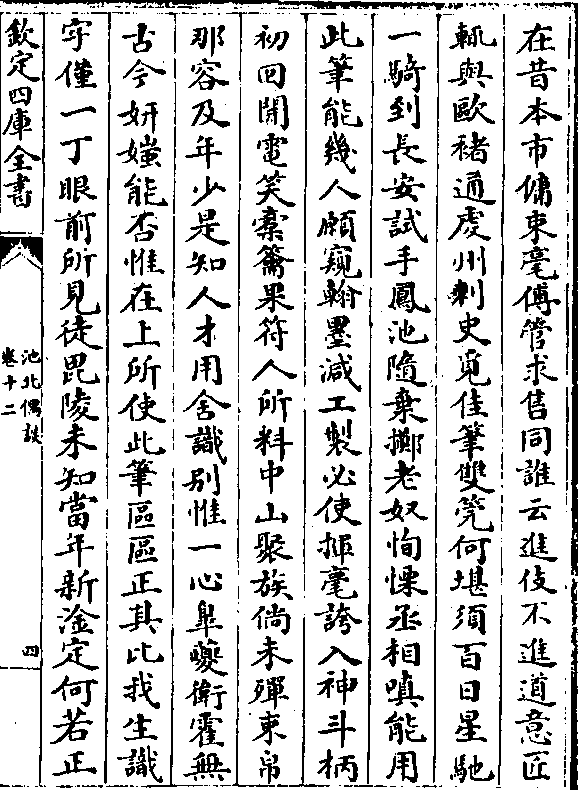 在昔本市傭束毫傅管求售同誰云進伎不進道意匠
輒與歐褚通處州刺史覓佳筆雙筦何堪須百日星馳
一騎到長安試手鳳池隨棄擲老奴恂慄丞相嗔能用
此筆能幾人願窺翰墨減工製必使揮毫誇入神斗柄
初回開電笑索籥果符人所料中山聚族倘未殫束帛
那容及年少是知人才用舍識別惟一心皐夔衛霍無
古今妍媸能否惟在上所使此筆區區正其比我生識
字僅一丁眼前所見徒毘陵未知當年新淦定何若正
欽定四庫全書
池北偶談
卷十二
四